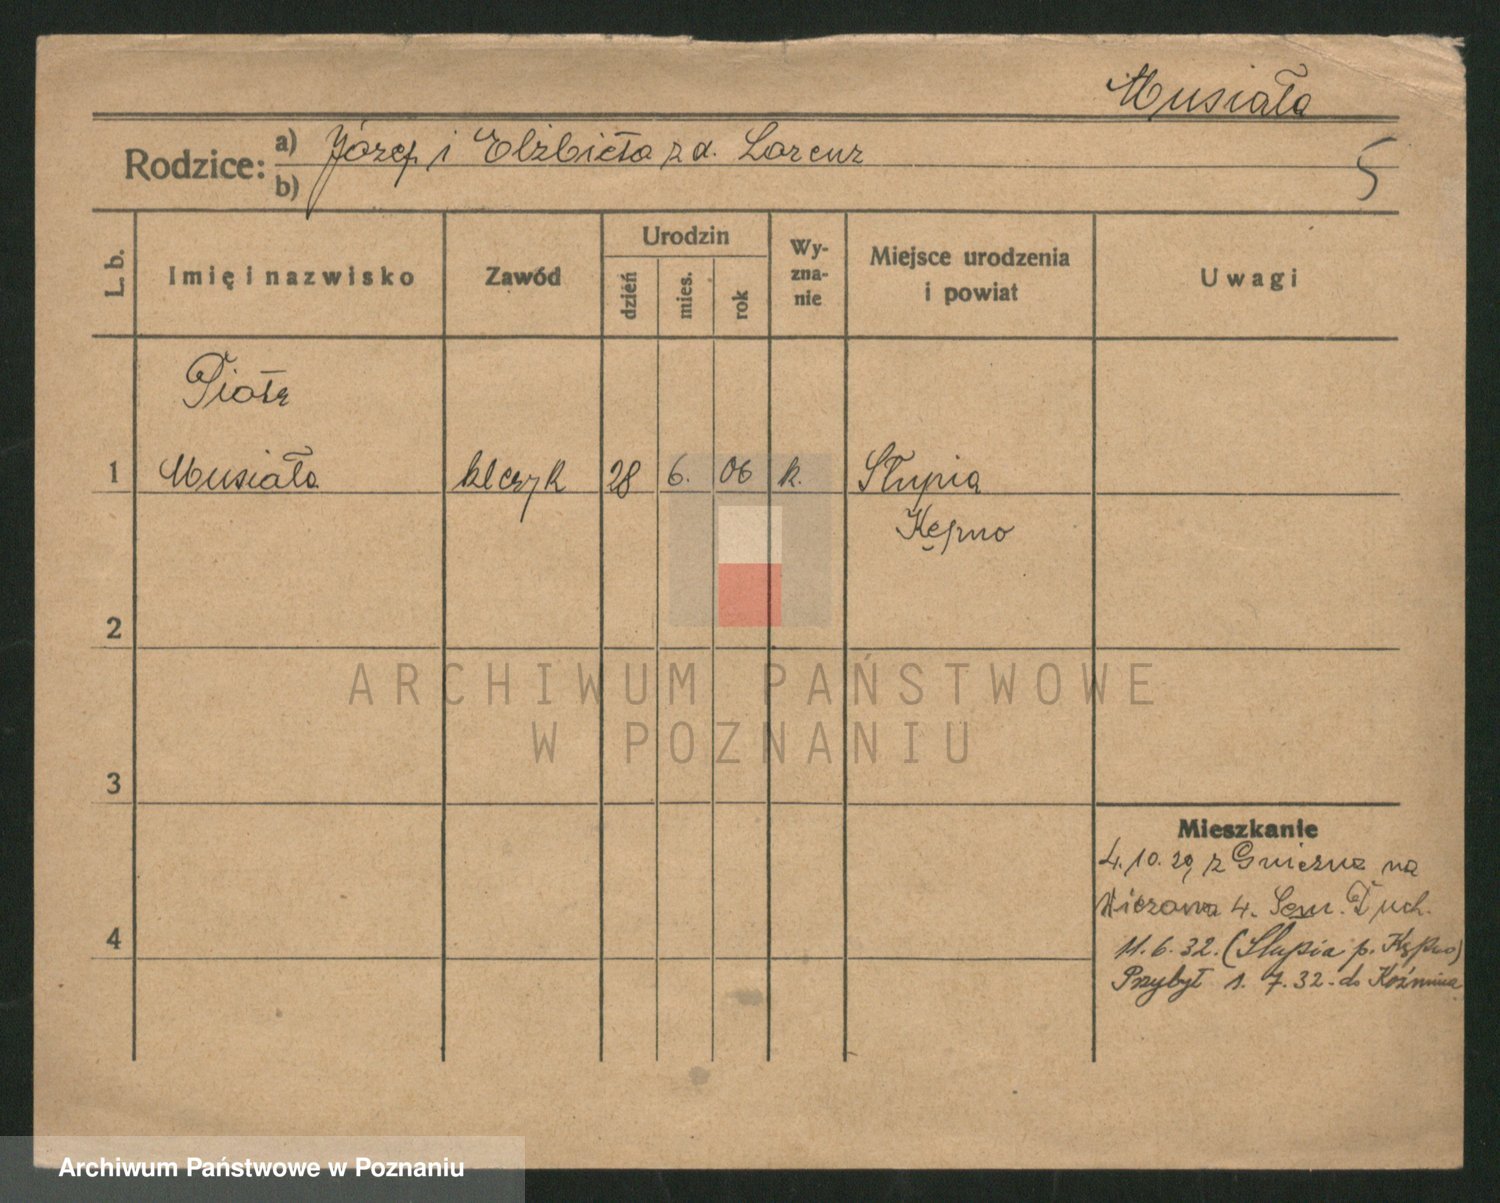 Musiała
Rodzice: a) Józef i Elżbieta z d. Lorenz
b)
5
L. b.
Imię i nazwisko
Zawód
Urodzin
dzień
mies.
rok
Wy-
zna-
nie
Miejsce urodzenia
i powiat
Uwagi
Piotr
1 Musiała kleryk 28 6. 06 k. Słupia
Kępno
2
3
4
Mieszkanie
4.10.29 z Gniezna na
Wieżowa 4. Sem. Duch.
11.6.32. (Słupia p. Kępno)
Przybył 1. 7.32. do Koźmina
ARCHIWUM PAŃSTWOWE
W POZNANIU
Archiwum Państwowe w Poznaniu